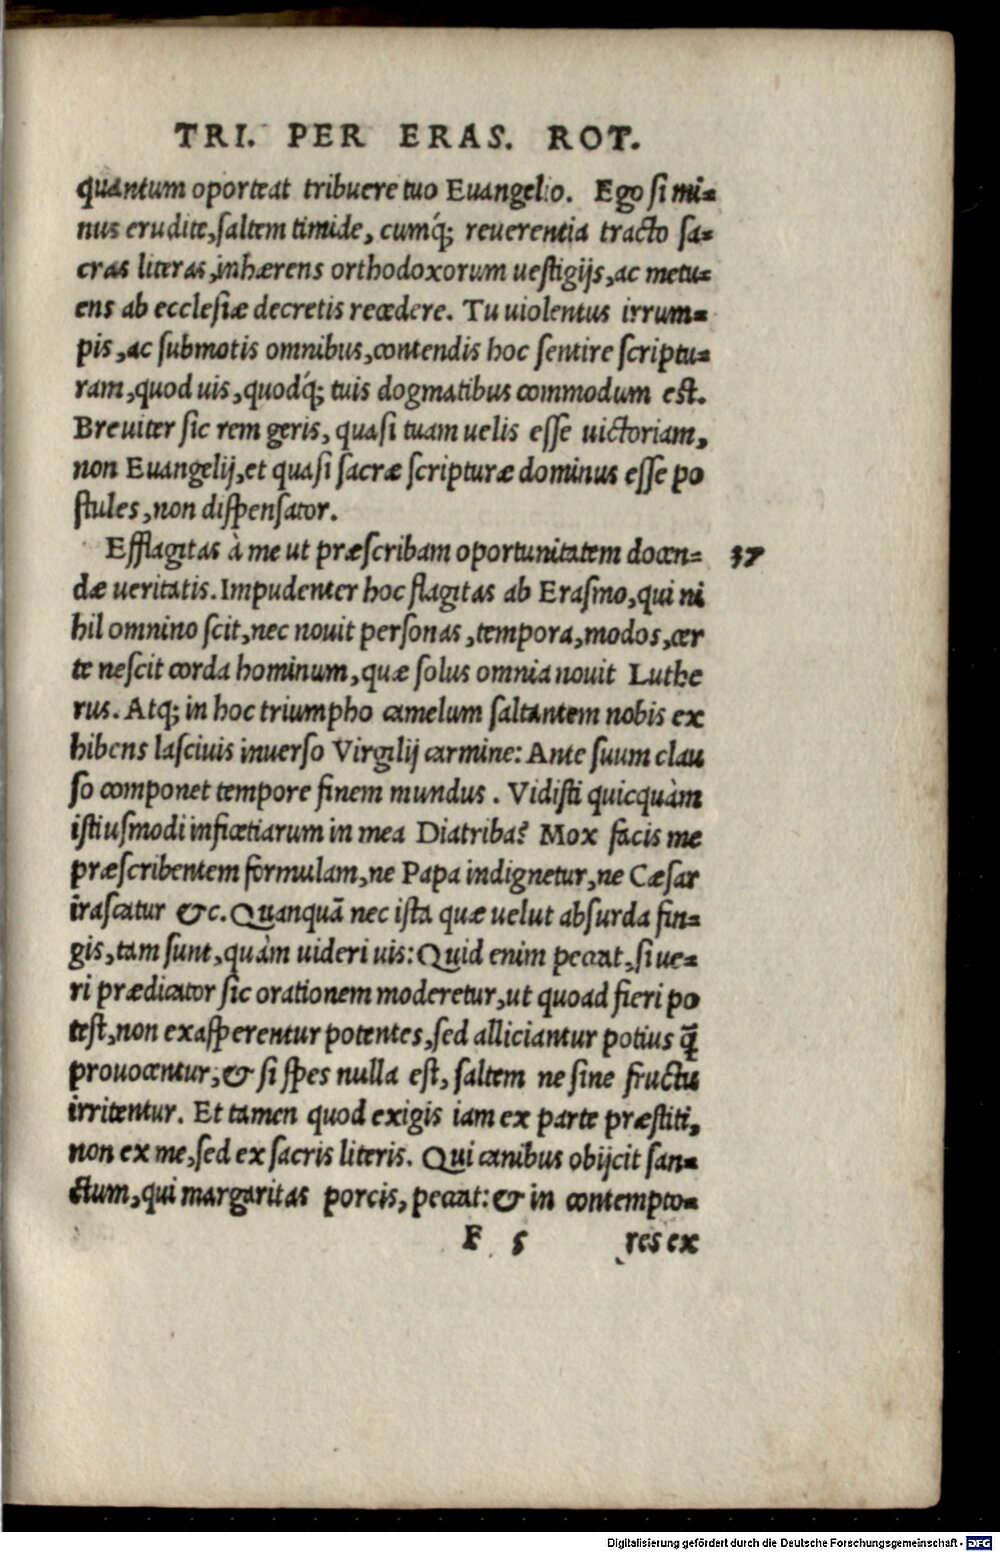 TRI. PER ERAS. ROT.
quantum oporteat tribuere tuo Euangelio. Ego si mi-
nus erudite, saltem timide, cumq́; reuerentia tracto sa-
cras literas, inhærens orthodoxorum uestigijs, ac metu-
ens ab ecclesiæ decretis recedere. Tu uiolentus irrum-
pis, ac submotis omnibus, contendis hoc sentire scriptu-
ram, quod uis, quodq́; tuis dogmatibus commodum est.
Breuiter sic rem geris, quasi tuam uelis esse uictoriam,
non Euangelij, et quasi sacræ scripturæ dominus esse po
stules, non dispensator.
Efflagitas à me ut præscribam oportunitatem docen- 37
dæ ueritatis. Impudenter hoc flagitas ab Erasmo, qui ni
hil omnino scit, nec nouit personas, tempora, modos, cer
te nescit corda hominum, quæ solus omnia nouit Luthe
rus. Atq; in hoc triumpho camelum saltantem nobis ex
hibens lasciuis inuerso Virgilij carmine: Ante suum clau
so componet tempore finem mundus. Vidisti quicquàm
istiusmodi inficetiarum in mea Diatriba? Mox facis me
præscribentem formulam, ne Papa indignetur, ne Cæsar
irascatur &c. Quanquã nec ista quæ uelut absurda fin-
gis, tam sunt, quàm uideri uis: Quid enim peccat, si ue-
ri prædicator sic orationem moderetur, ut quoad fieri po
test, non exasperentur potentes, sed alliciantur potius q̃
prouocentur, & si spes nulla est, saltem ne sine fructu
irritentur. Et tamen quod exigis iam ex parte præstiti,
non ex me, sed ex sacris literis. Qui canibus obijcit san-
ctum, qui margaritas porcis, peccat: & in contempto-
F 5 res ex
Digitalisierung gefördert durch die Deutsche Forschungsgemeinschaft - DFG